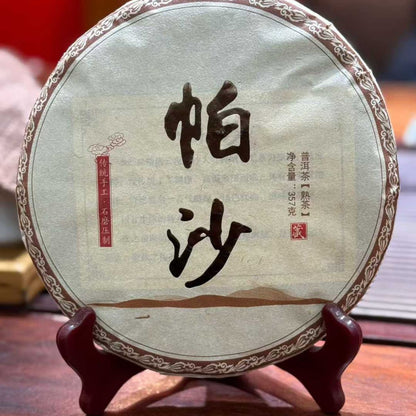 帕沙
普洱茶【熟茶】
净含量：357克
藏
传统手工·石磨压制